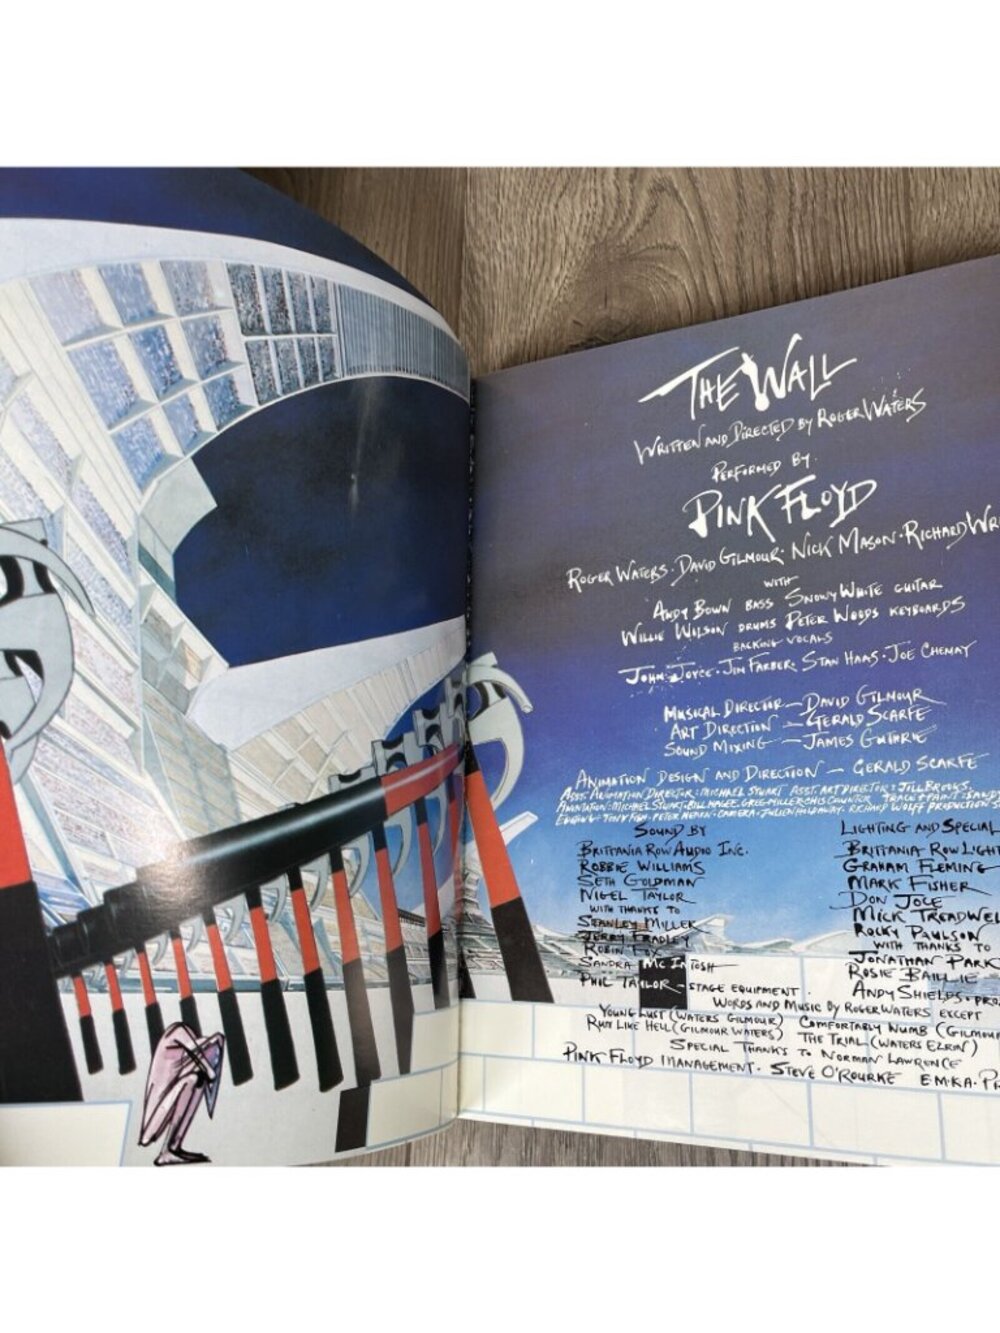 THE WALL
WRITTEN AND DIRECTED BY ROGER WATERS
PERFORMED BY
PINK FLOYD
ROGER WATERS · DAVID GILMOUR · NICK MASON · RICHARD WRI
WITH
ANDY BOWN BASS SNOWY WHITE GUITAR
WILLIE WILSON DRUMS PETER WOODS KEYBOARDS
BACKING VOCALS
JOHN JOYCE · JIM FARBER · STAN HAAS · JOE CHEMAY
MUSICAL DIRECTOR — DAVID GILMOUR
ART DIRECTION — GERALD SCARFE
SOUND MIXING — JAMES GUTHRIE
ANIMATION DESIGN AND DIRECTION — GERALD SCARFE
ASST. ANIMATION DIRECTOR: MICHAEL STUART ASST. ART DIRECTOR: JILL BROOKS.
ANIMATION: MICHAEL STUART · BILL MAGEE. GREG MILLER TRACE & PAINT:
EDITING: TONY FISH · PETER CAMERA: JULIEN HOLDAWAY. RICHARD WOLFF PRODUCTIONS
SOUND BY
BRITTANIA ROW AUDIO INC.
ROBBIE WILLIAMS
SETH GOLDMAN
NIGEL TAYLOR
WITH THANKS TO
STANLEY MILLER
JERRY FRADLEY
ROBIN FOX
SANDRA MC INTOSH
PHIL TAYLOR — STAGE EQUIPMENT.
LIGHTING AND SPECIAL
BRITTANIA ROW LIGHT
GRAHAM FLEMING
MARK FISHER
DON JOCE
MICK TREADWEL
ROCKY PAULSON
WITH THANKS TO
JONATHAN PARK
ROSIE BAILLIE
ANDY SHIELDS · PRO
WORDS AND MUSIC BY ROGER WATERS EXCEPT
YOUNG LUST (WATERS GILMOUR) COMFORTABLY NUMB (GILMOU
RUN LIKE HELL (GILMOUR WATERS) THE TRIAL (WATERS EZRIN)
SPECIAL THANKS TO NORMAN LAWRENCE
PINK FLOYD MANAGEMENT · STEVE O'ROURKE EMKA · PR